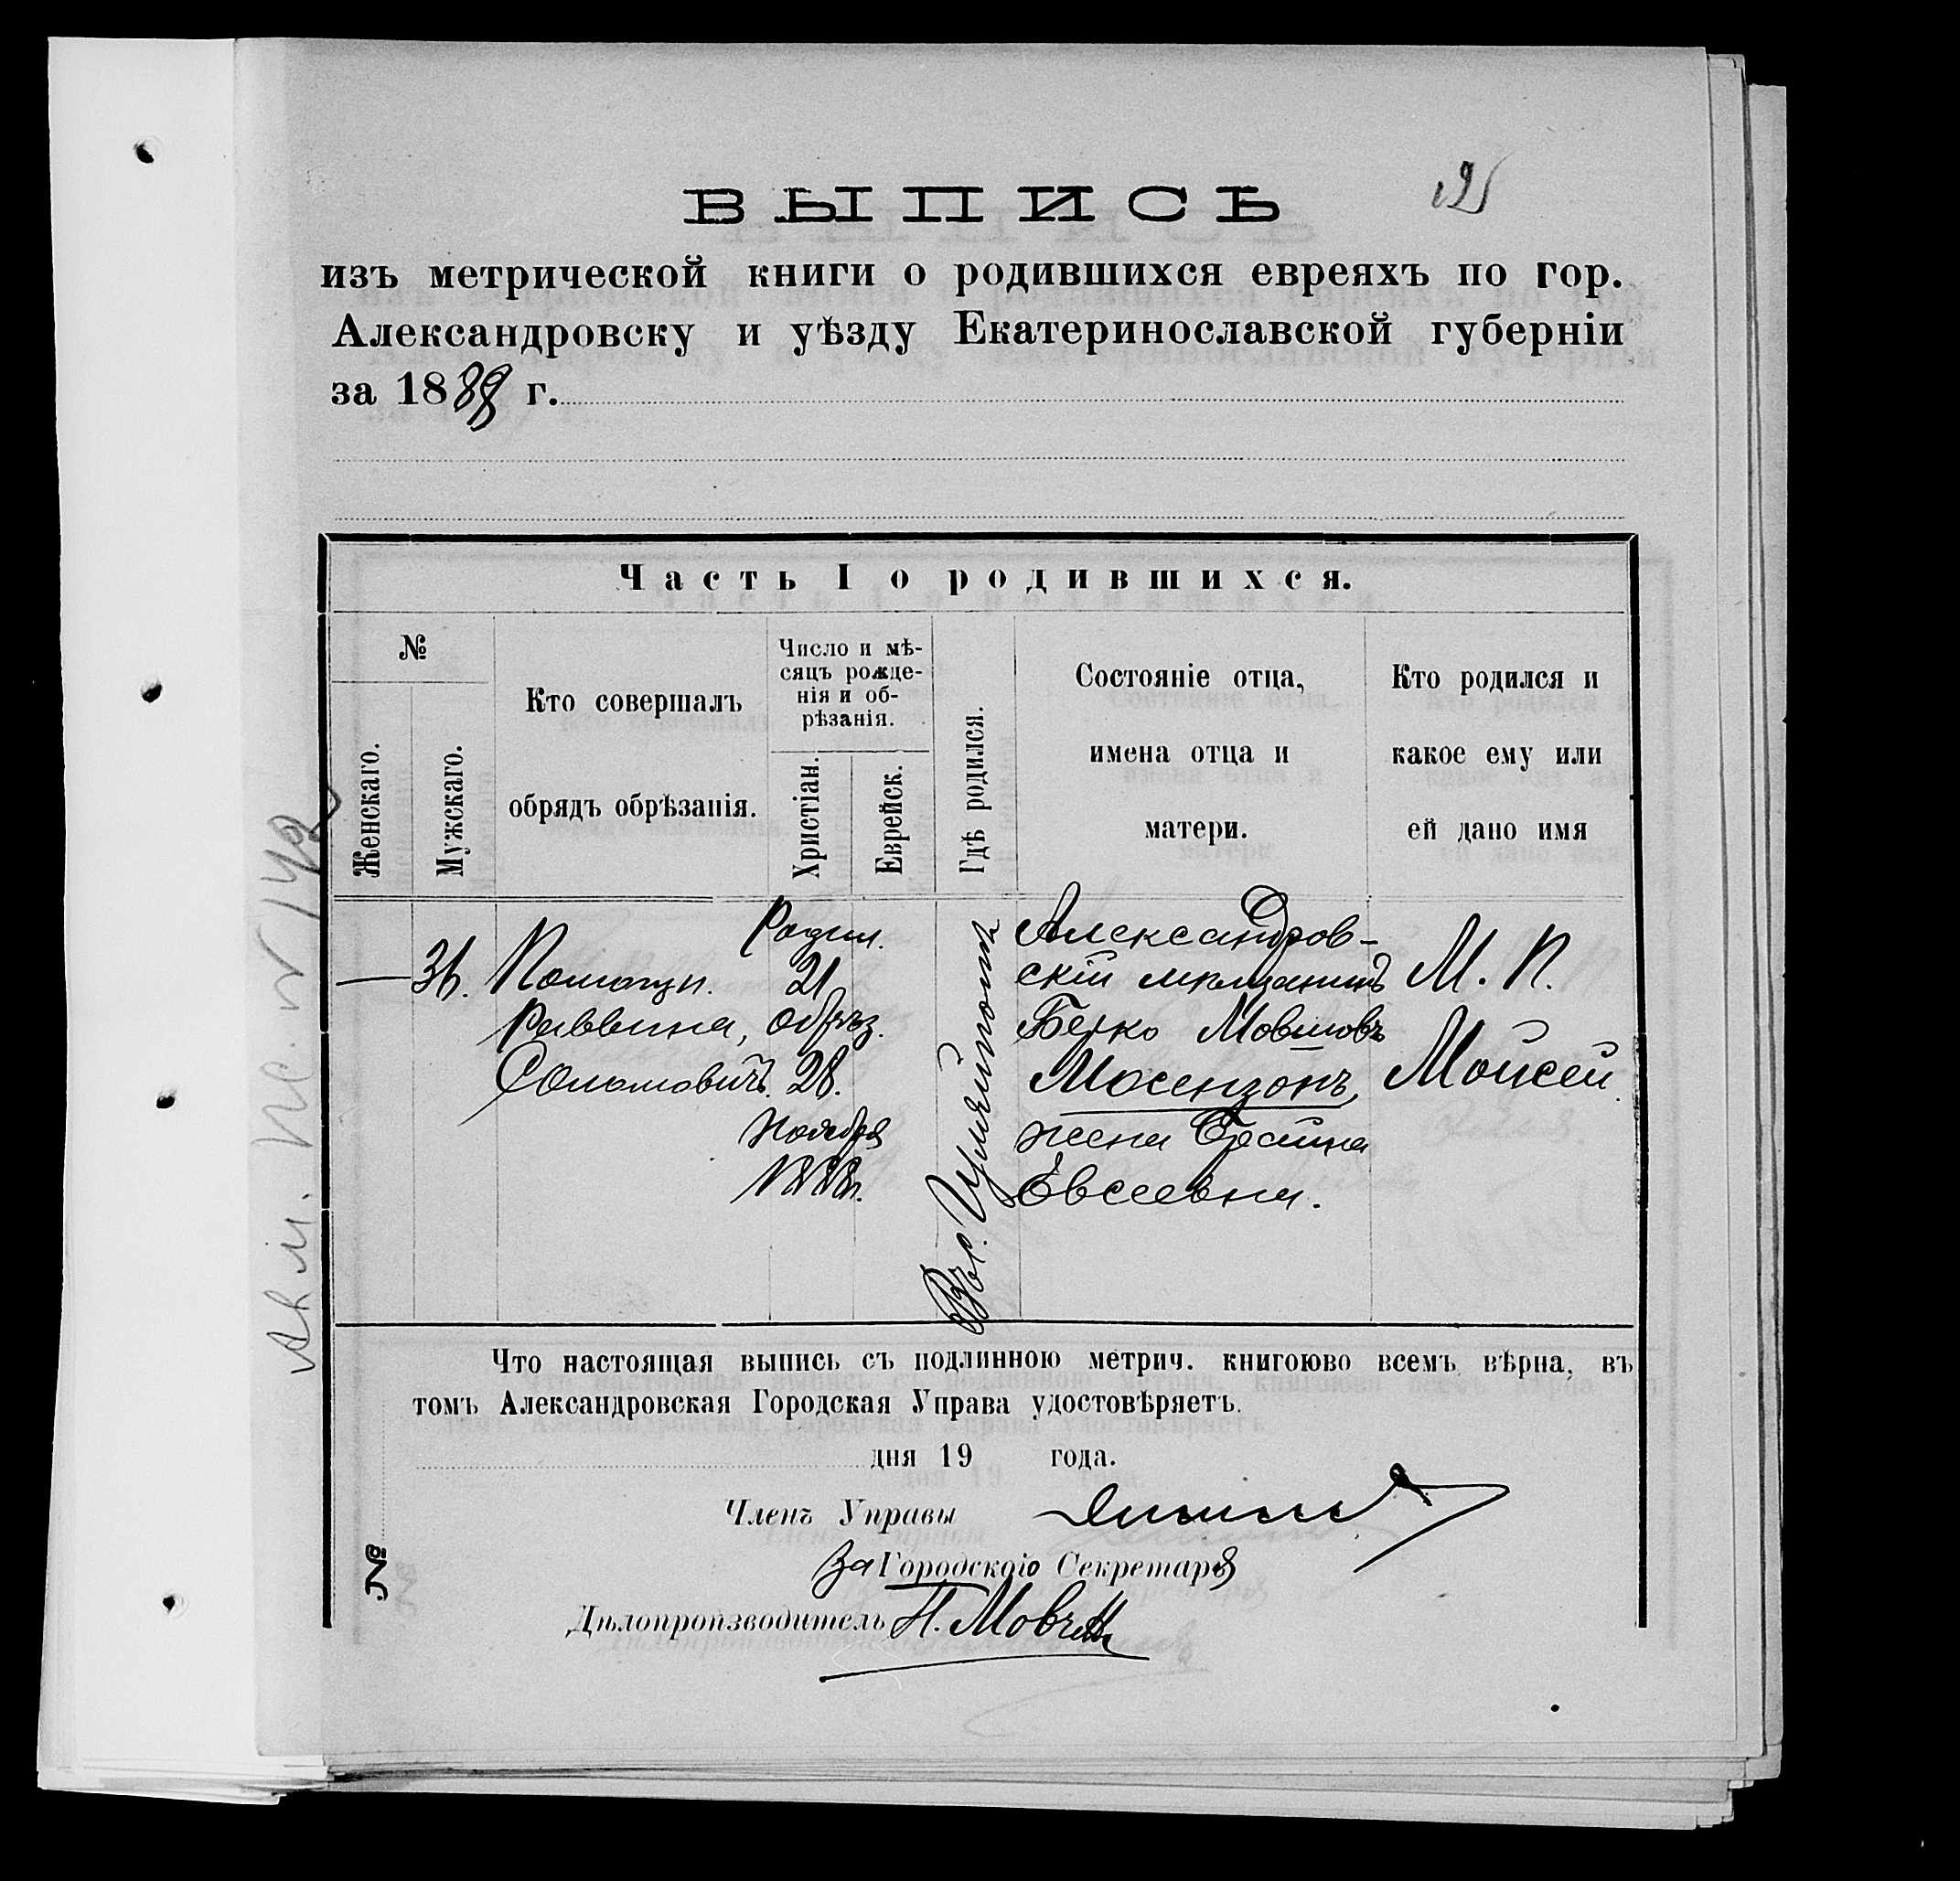 ВЫПИСЬ
изъ метрической книги о родившихся евреяхъ по гор.
Александровску и уѣзду Екатеринославской губерніи
за 1888 г.
Часть I о родившихся.
№
Женскаго.
Мужскаго.
Кто совершалъ
обрядъ обрѣзанія.
Число и мѣ-
сяцъ рожде-
нія и об-
рѣзанія.
Христіан.
Еврейск.
Гдѣ родился.
Состояніе отца,
имена отца и
матери.
Кто родился и
какое ему или
ей дано имя
— 36.
Помощн.
Раввина,
Соломовичъ.
Родил.
21
обрѣз.
28.
Ноября
1888г.
Александров-
скій мѣщанинъ
Берко Мовшовъ
Мосензонъ,
жена Брайна
Евсеевна.
М. П.
Мойсей.
Что настоящая выпись съ подлинною метрич. книгоюво всемъ вѣрна, въ
томъ Александровская Городская Управа удостовѣряетъ.
дня 19 года.
Членъ Управы
За Городского Секретаря
Дѣлопроизводитель Н. Мовчан
№